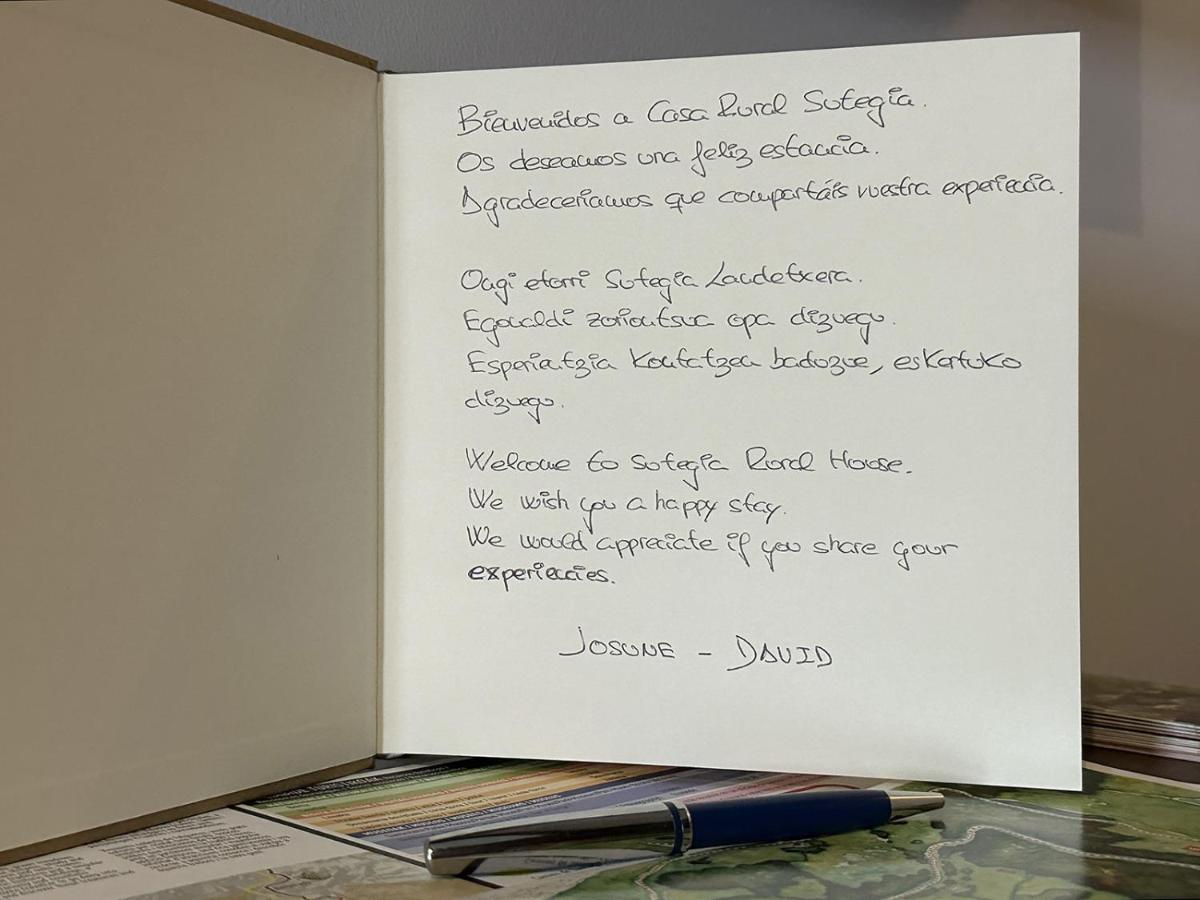 Bienvenidos a Casa Rural Sutegia.
Os deseamos una feliz estancia.
Agradeceriamos que compartáis vuestra experiencia.
Ongi etorri Sutegia Landetxera.
Egonaldi zoriontsua opa dizuegu.
Esperientzia kontatzea badozue, eskertuko
dizuegu.
Welcome to Sutegia Rural House.
We wish you a happy stay.
We would appreciate if you share your
experiencies.
JOSUNE - DAVID